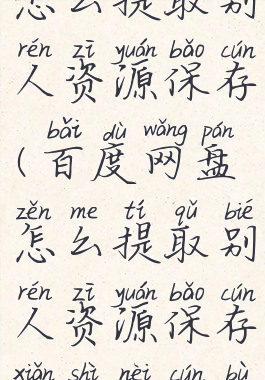 怎么提取别
rén zī yuán bǎo cún
人资源保存
bǎi dù wǎng pán
(百度网盘
zěn me tí qǔ bié
怎么提取别
rén zī yuán bǎo cún
人资源保存
xiǎn shì nèi cún bù